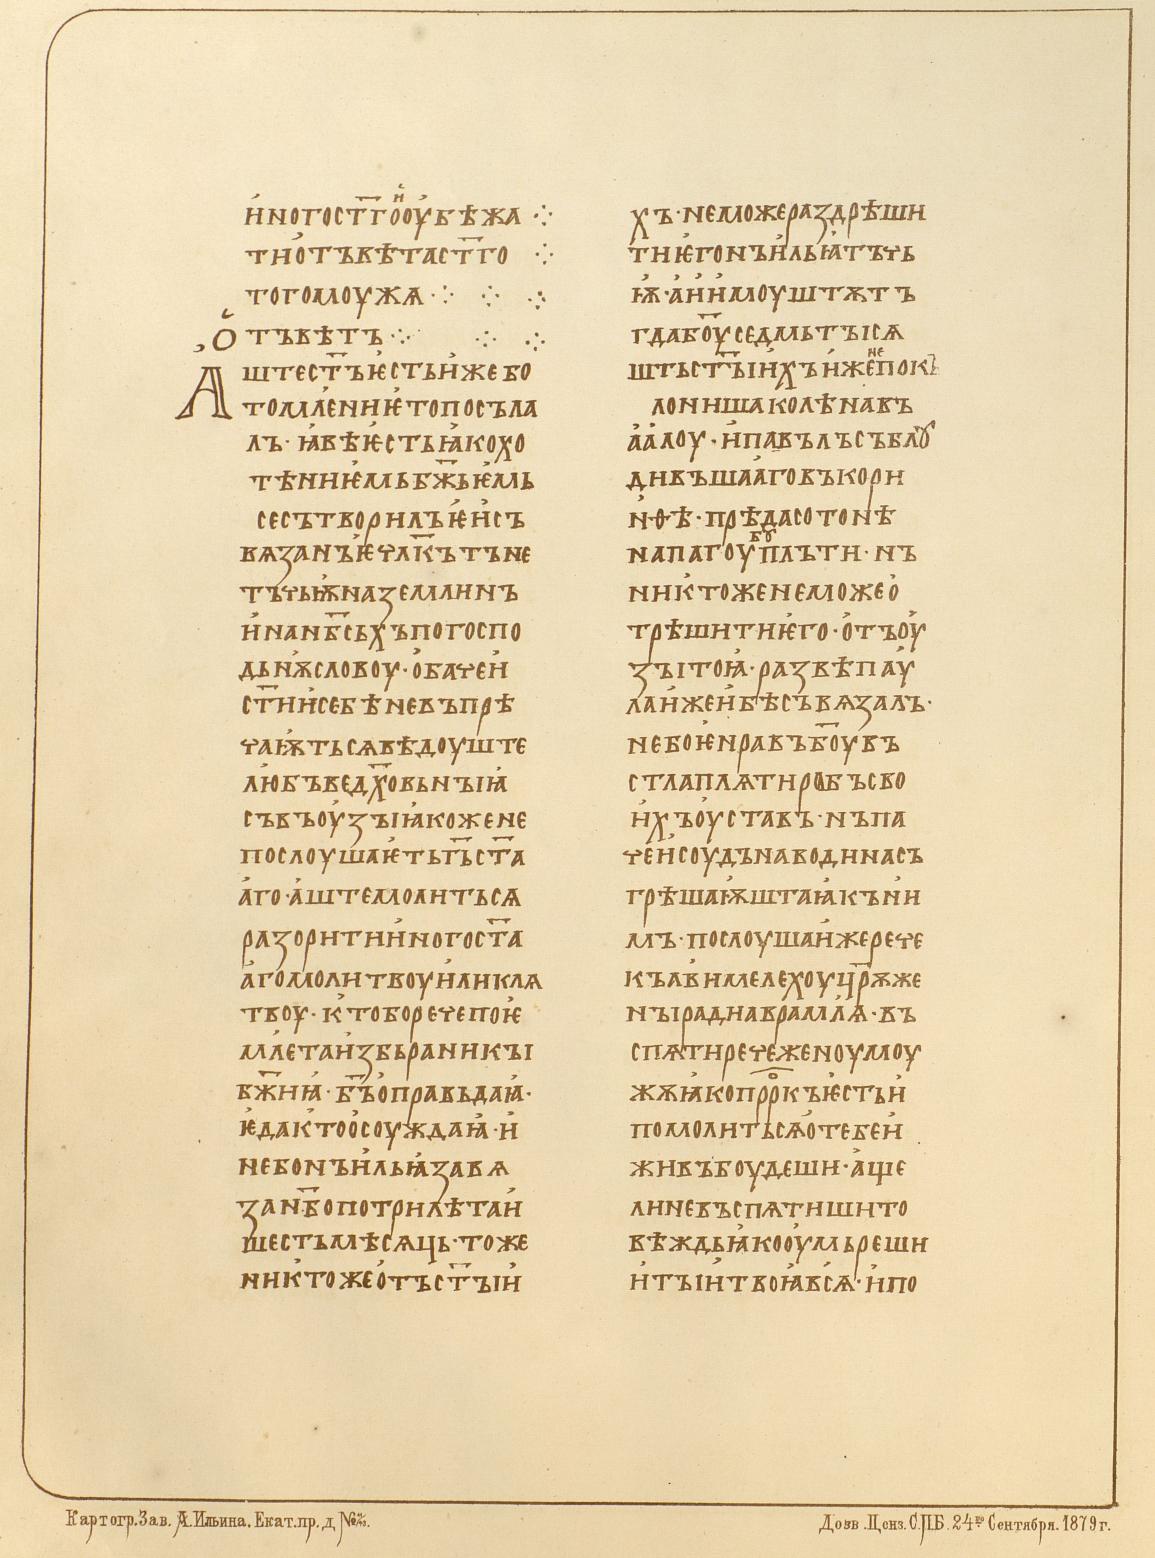 и҆ного ст҃го и҆ оу҆бѣжа
ти о҆тъвѣта ст҃го
того моужꙗ ·
О҆тъвѣтъ ·
Аште ст҃ъ ѥсть и҆же бо
томлѥниѥ то посъла
лъ · ꙗ҆вѣ ѥсть ꙗ҆ко хо
тѣниѥмь бж҃ьѥмь
се сътворилъ ѥ҆ и҆ съ
вѧзанъ ѥ҆ чл҃къ тъ не
тъчьѭ на земли нъ
и҆ на нб҃сьхъ по госпо
дьнѭ словоу · о҆баче и҆
ст҃ии҆ себѣ не въпрѣ
чаѭть сѧ вѣдоуште
любъве дх҃овьныꙗ
съвъоу҆зы ꙗ҆коже не
послоушаѥть г҃ъ ст҃а
а҆го · а҆ште молить сѧ
разорити и҆ного ст҃а
а҆го молитвоу и҆ли клѧ
твоу · кто бо рече поѥ
млѥта и҆збьраникы
бж҃иꙗ · б҃ъ о҆правьдаꙗ ·
ѥда кто о҆соуждаꙗ · и҆
не бо нъ и҆льꙗ завѧ
за нб҃о по три лѣта и҆
шесть мѣсѧць · тоже
никтоже о҆тъ ст҃ыи҆
хъ · не може раздрѣши
ти ѥго нъ и҆льꙗ тъчь
ѭ · а҆ и҆ и҆моуштѫтъ
гда б҃оу седмь тысѧ
шть ст҃ыи҆хъ и҆же не пок
лониша колѣна въ
а҆а҆лоу · и҆ павълъ съблоу
дивъшаа҆го въ кори
нѳѣ · прѣда сотонѣ
на пагоубоу плъти · нъ
никтоже не може о҆
трѣшити ѥго · о҆тъ оу҆
зы тоꙗ · развѣ паѵ
ла и҆же и҆ бѣ съвѧзалъ ·
не бо ѥ нравъ б҃оу въ
стлаплѧти рабъ сво
и҆хъ оу҆ставъ · нъ па
че и҆ соудъ наводи на съ
грѣшаѭштаꙗ къ ни
мъ · послоушаи҆ же рече
къ авимелехоу цр҃ѫ же
ны ради аврамлѧ · въ
спѧти рече женоу моу
жѫ ꙗ҆ко прр҃окъ ѥсть и҆
помолить сѧ о тебе и҆
живъ боудеши · а҆ще
ли не въспѧтиши то
вѣждь ꙗ҆ко оу҆мьреши
и҆ ты и҆ твоꙗ всѧ · и҆ по
Картогр. Зав. А. Ильина, Екат. пр. д. №2.
Дозв. Ценз. С.П.Б. 24го Сентября. 1879 г.